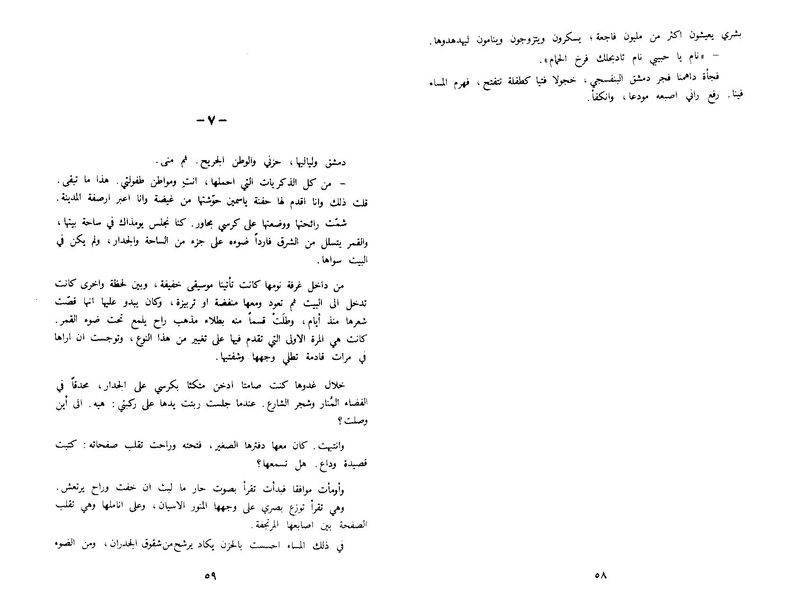 بشري يعيشون اكثر من مليون فاجعة؛ يسكرون ويتزوجون وينامون ليهدهدوها.
– «نام يا حبيبي نام تادبحلك فرخ الحمام».
فجأة داهمنا فجر دمشق البنفسجي، خجولا فتيا كطفلة تتفتح، فهرم المساء
فينا. رفع راني اصبعه مودعا، وانكفأ.
٥٨
– ٧ –
دمشق ولياليها، حزني والوطن الجريح. ثم منى.
– من كل الذكريات التي احملها، انتِ ومواطن طفولتي. هذا ما تبقى.
قلت ذلك وانا اقدم لها حفنة ياسمين حوّشتها من غيضة وانا اعبر ارصفة المدينة.
شمّت رائحتها ووضعتها على كرسي مجاور. كنا نجلس يومذاك في ساحة بيتها،
والقمر يتسلل من الشرق فارداً ضوءه على جزء من الساحة والجدار، ولم يكن في
البيت سواها.
من داخل غرفة نومها كانت تأتينا موسيقى خفيفة، وبين لحظة واخرى كانت
تدخل الى البيت ثم تعود ومعها منفضة او تربيزة، وكان يبدو عليها انها قصّت
شعرها منذ أيام، وطلَتْ قسماً منه بطلاء مذهب راح يلمع تحت ضوء القمر.
كانت هي المرة الاولى التي تقدم فيها على تغيير من هذا النوع، وتوجست ان اراها
في مرات قادمة تطلي وجهها وشفتيها.
خلال غدوها كنت صامتا ادخن متكئا بكرسي على الجدار، محدقاً في
الفضاء المُنار وشجر الشارع. عندما جلست ربتت يدها على ركبتي: هيه. الى أين
وصلت؟
وانتبهت. كان معها دفترها الصغير، فتحته وراحت تقلب صفحاته: كتبت
قصيدة وداع. هل تسمعها؟
وأومأت موافقا فبدأت تقرأ بصوت حار ما لبث ان خفت وراح يرتعش.
وهي تقرأ توزع بصري على وجهها المنور الاسيان، وعلى اناملها وهي تقلب
الصفحة بين اصابعها المرتجفة.
في ذلك المساء احسست بالحزن يكاد يرشح من شقوق الجدران، ومن الضوء
٥٩